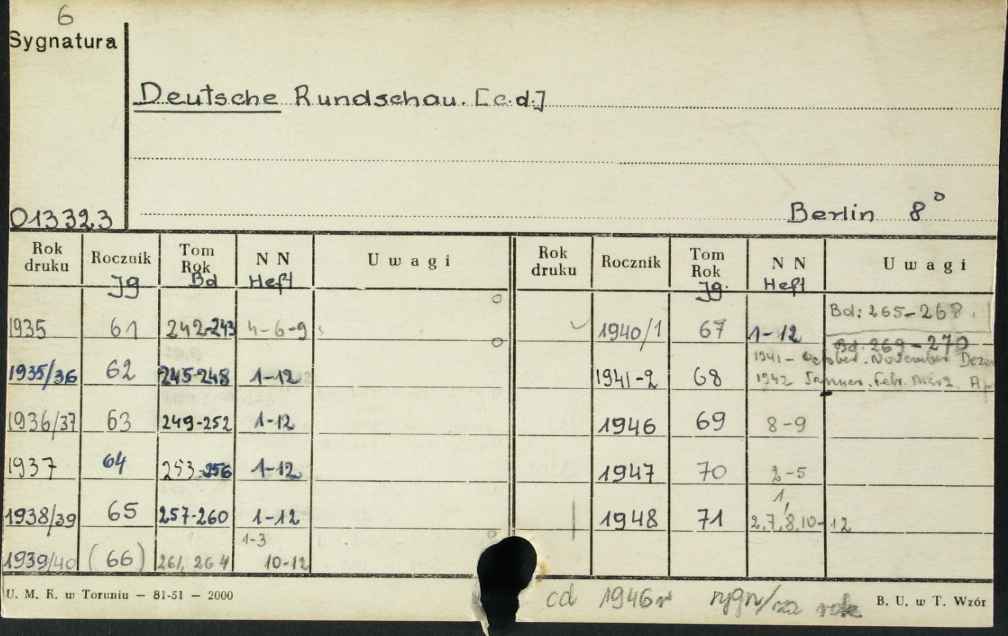 6
Sygnatura
Deutsche Rundschau. [c.d.]
013323
Berlin 8°
Rok druku Rocznik Tom Rok N N U w a g i Rok druku Rocznik Tom Rok N N U w a g i
Jg Bd Heft Jg. Heft
1935 61 242-243 4-6-9 1940/1 67 1-12 Bd: 265-268
Bd. 269-270
1935/36 62 245-248 1-12 1941-2 68 1941 - October. November Deze
1942 Januar. Febr. März. Ap
1936/37 63 249-252 1-12 1946 69 8-9
1937 64 253-256 1-12 1947 70 2-5
1938/39 65 257-260 1-12 1948 71 1, 2,7,8,10-12
1939/40 (66) 261, 264 1-3 10-12
U. M. K. w Toruniu — 81-51 — 2000
cd 1946r sygn/za rok
B. U. w T. Wzór